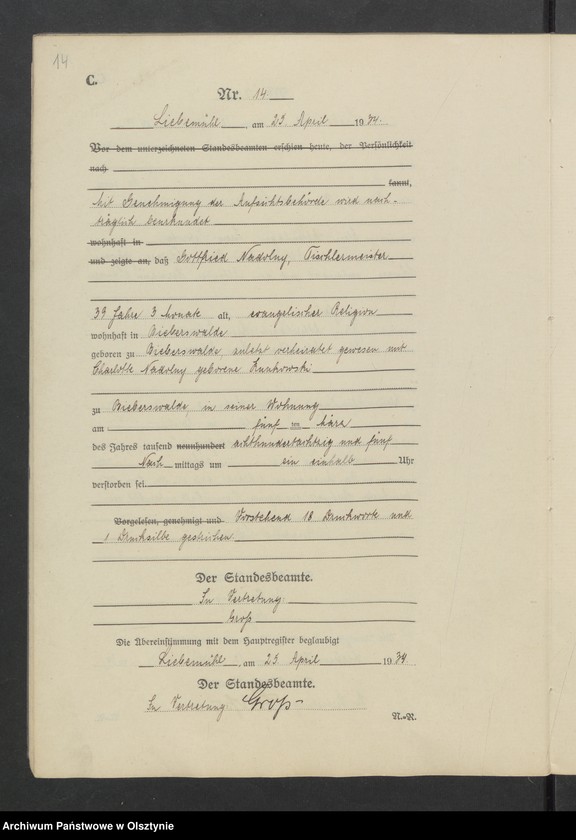 14
C.
Nr. 14.
Liebemühl am 23. April 1934.
Vor dem unterzeichneten Standesbeamten erschien heute, der Persönlichkeit
nach
kannt,
Mit Genehmigung der Aufsichtsbehörde wird nach-
träglich beurkundet
wohnhaft in
und zeigte an, daß Gottfried Nadolny, Tischlermeister
39 Jahre 3 Monate alt, evangelischer Religion
wohnhaft in Bieberswalde
geboren zu Bieberswalde, zuletzt verheiratet gewesen mit
Charlotte Nadolny geborene Kunkowski
zu Bieberswalde, in seiner Wohnung
am fünf ten März
des Jahres tausend neunhundert achthundertachtzig und fünf
Nach mittags um ein einhalb Uhr
verstorben sei.
Vorgelesen, genehmigt und Vorstehend 18 Druckworte und
1 Drucksilbe gestrichen
Der Standesbeamte.
In Vertretung:
Groß
Die Übereinstimmung mit dem Hauptregister beglaubigt
Liebemühl, am 23. April 1934.
Der Standesbeamte.
In Vertretung: Groß
N.-R.
Archiwum Państwowe w Olsztynie